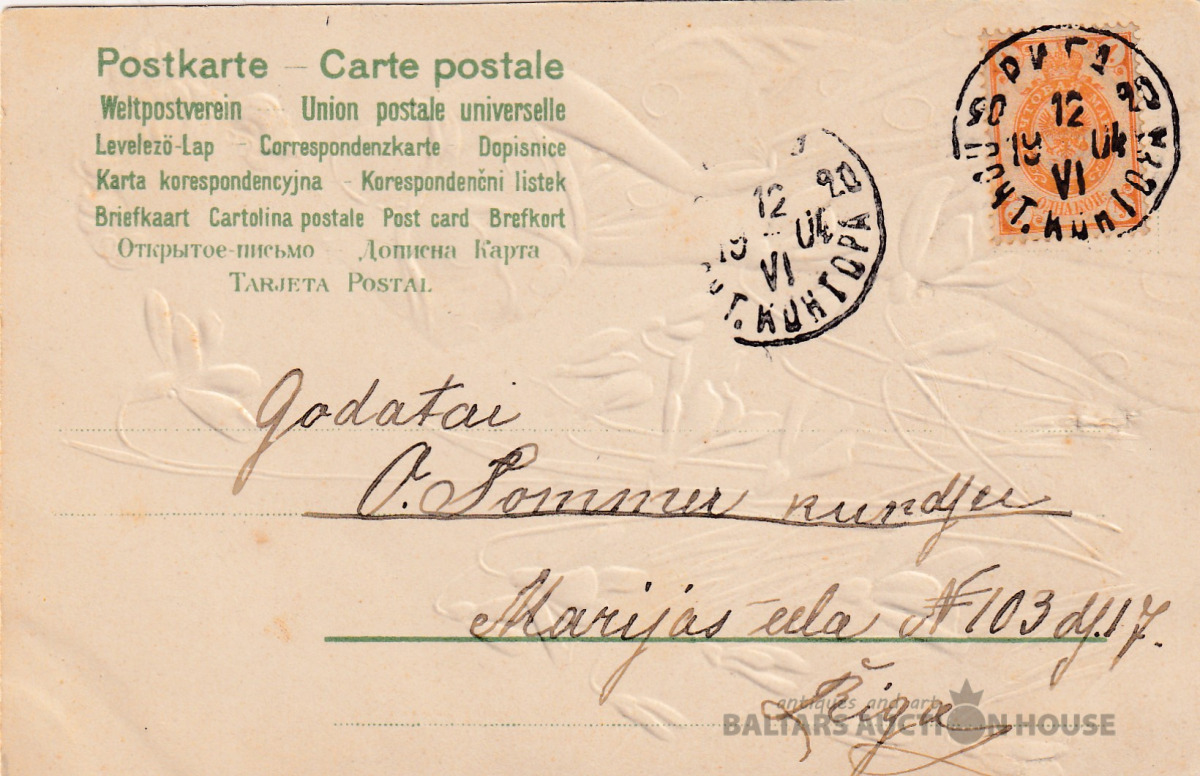 Postkarte – Carte postale
Weltpostverein – Union postale universelle
Levelező-Lap – Correspondenzkarte Dopisnice
Karta korespondencyjna – Korespondenčni listek
Briefkaart Cartolina postale Post card Brefkort
Открытое-письмо Дописна Карта
TARJETA POSTAL
РИГА
12
19 04
VI
ПОЧТ. КОНТОРА
20
12 20
19 04
VI
Т. КОНТОРА
Godatai
O. Sommer kundſei
Marijas eela № 103 dſ. 17.
Rīgā
antiques and art
BALTARS AUCTION HOUSE